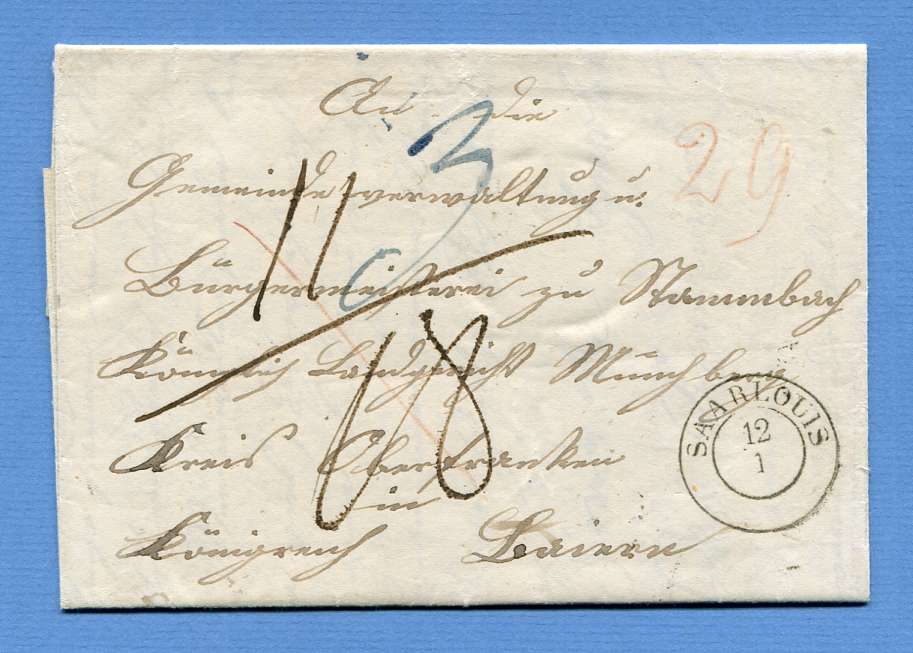 An die
Gemeindeverwaltung u.
Bürgermeisterei zu Stammbach
Königlich Landgericht Münchberg
Kreis Oberfranken
in
Königreich Baiern
3
29
11
68
SAARLOUIS
12
1